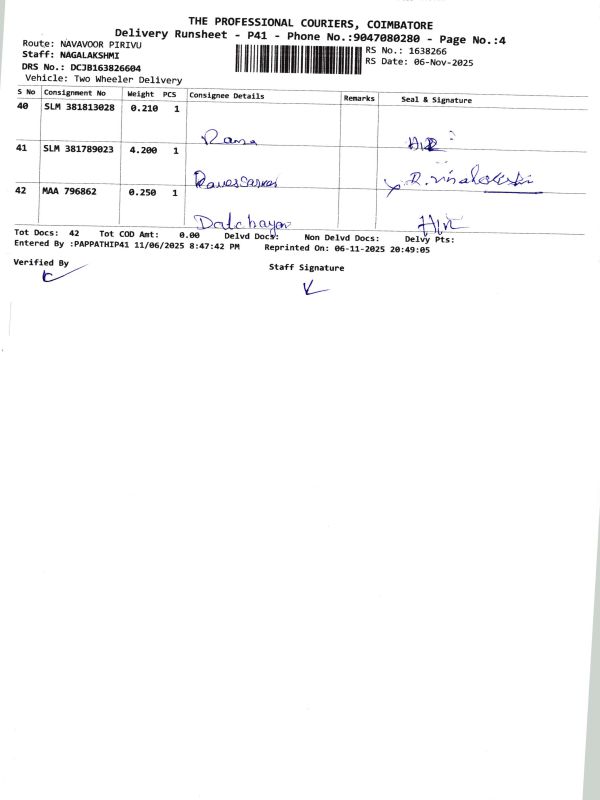 THE PROFESSIONAL COURIERS, COIMBATORE
Delivery Runsheet - P41 - Phone No.:9047080280 - Page No.:4
Route: NAVAVOOR PIRIVU
RS No.: 1638266
Staff: NAGALAKSHMI
RS Date: 06-Nov-2025
DRS No.: DCJB163826604
Vehicle: Two Wheeler Delivery
S No Consignment No Weight PCS Consignee Details Remarks Seal & Signature
40 SLM 381813028 0.210 1
Rama
41 SLM 381789023 4.200 1
42 MAA 796862 0.250 1
Datchayan
Tot Docs: 42 Tot COD Amt: 0.00 Delvd Docs: Non Delvd Docs: Delvy Pts:
Entered By :PAPPATHIP41 11/06/2025 8:47:42 PM Reprinted On: 06-11-2025 20:49:05
Verified By
Staff Signature